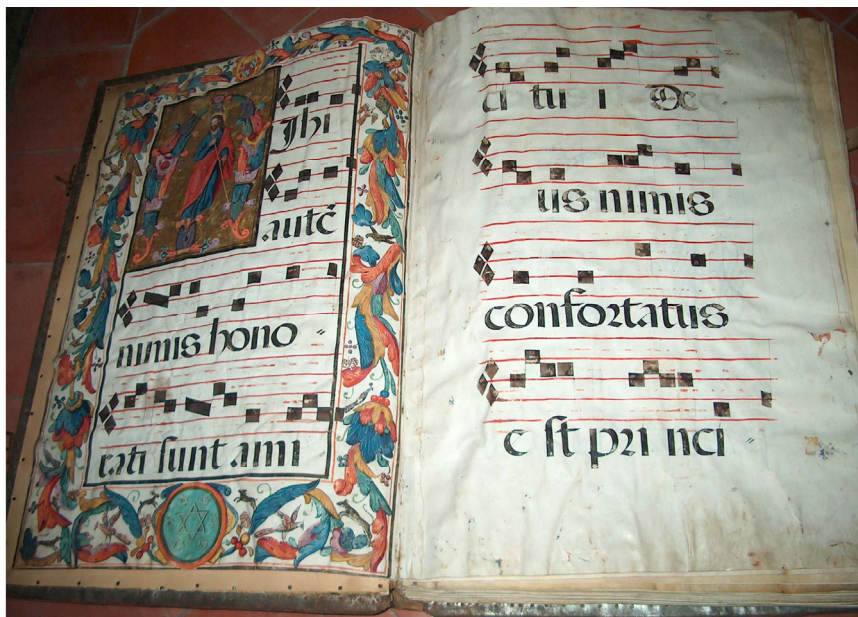 MIhi
autē
nimis hono=
rati sunt ami
ci tu i De
us nimis
confortatus
e st pri nci=